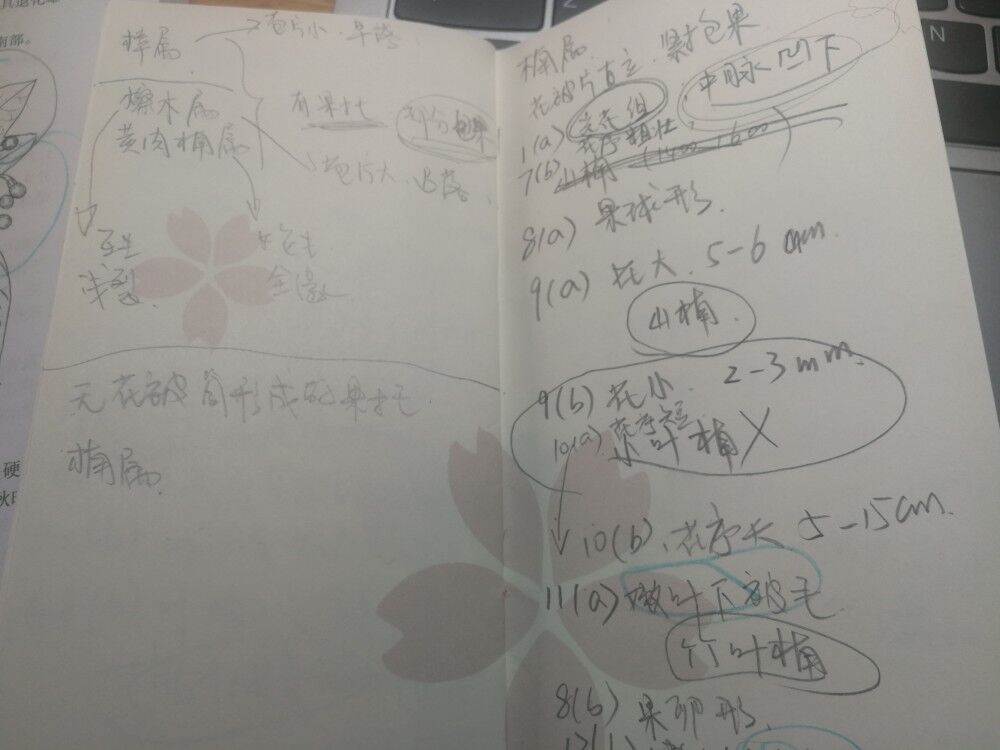 樟属
苞片小、早落
檫木属
黄肉楠属
有果托
部分包果
苞片大、迟落
互生
浅裂
全缘
无花被筒形成的果托
楠属
楠属
花被片直立、紧抱包果
中脉凹下
1(a) 花序粗壮、
7(b) 山楠 (1400-1600)
8(a) 果球形
9(a) 花大、5-6 mm.
山楠.
9(b) 花小、2-3 mm.
10(a) 花序短
小叶楠 X
10(b)、花序长 5-15cm.
11(a) 嫩叶下被毛
竹叶楠
8(b) 果卵形、
南部.
硬
N